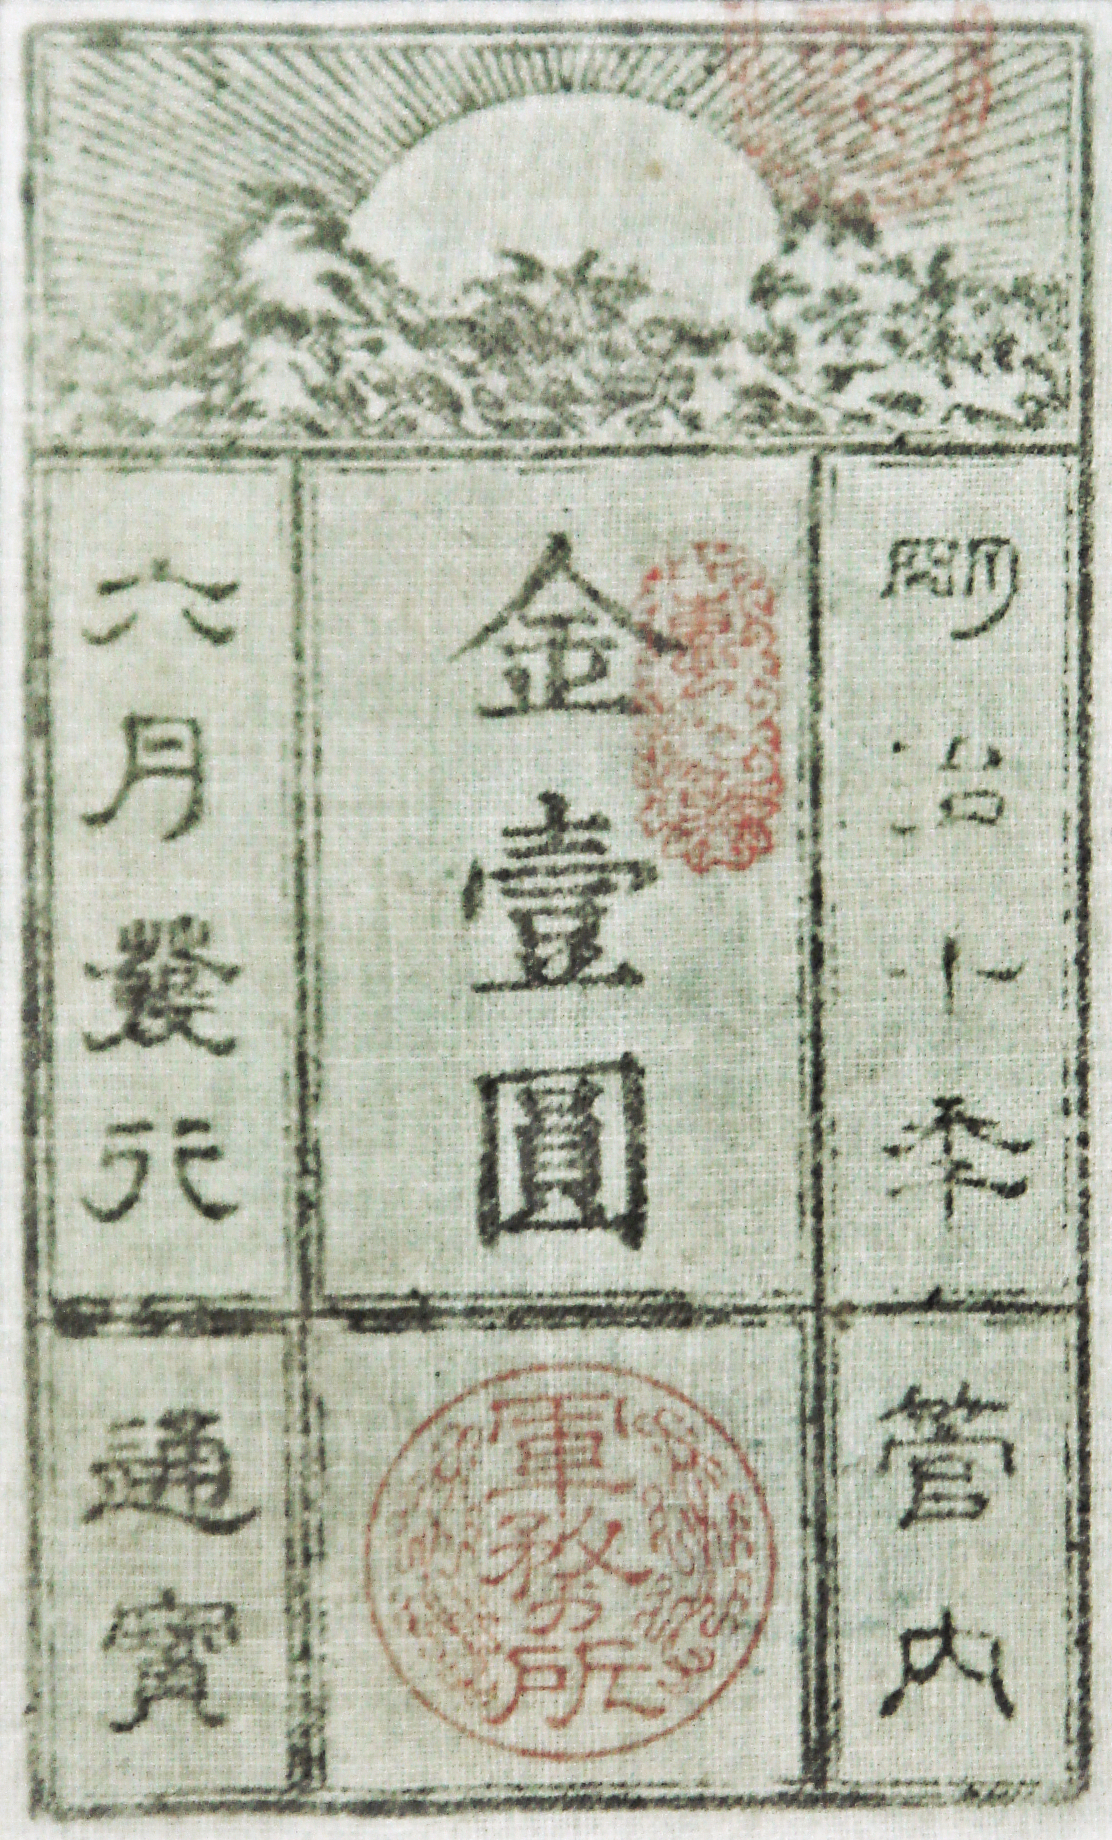 明治十季
金壹圓
六月發行
管內
軍務所
通寳